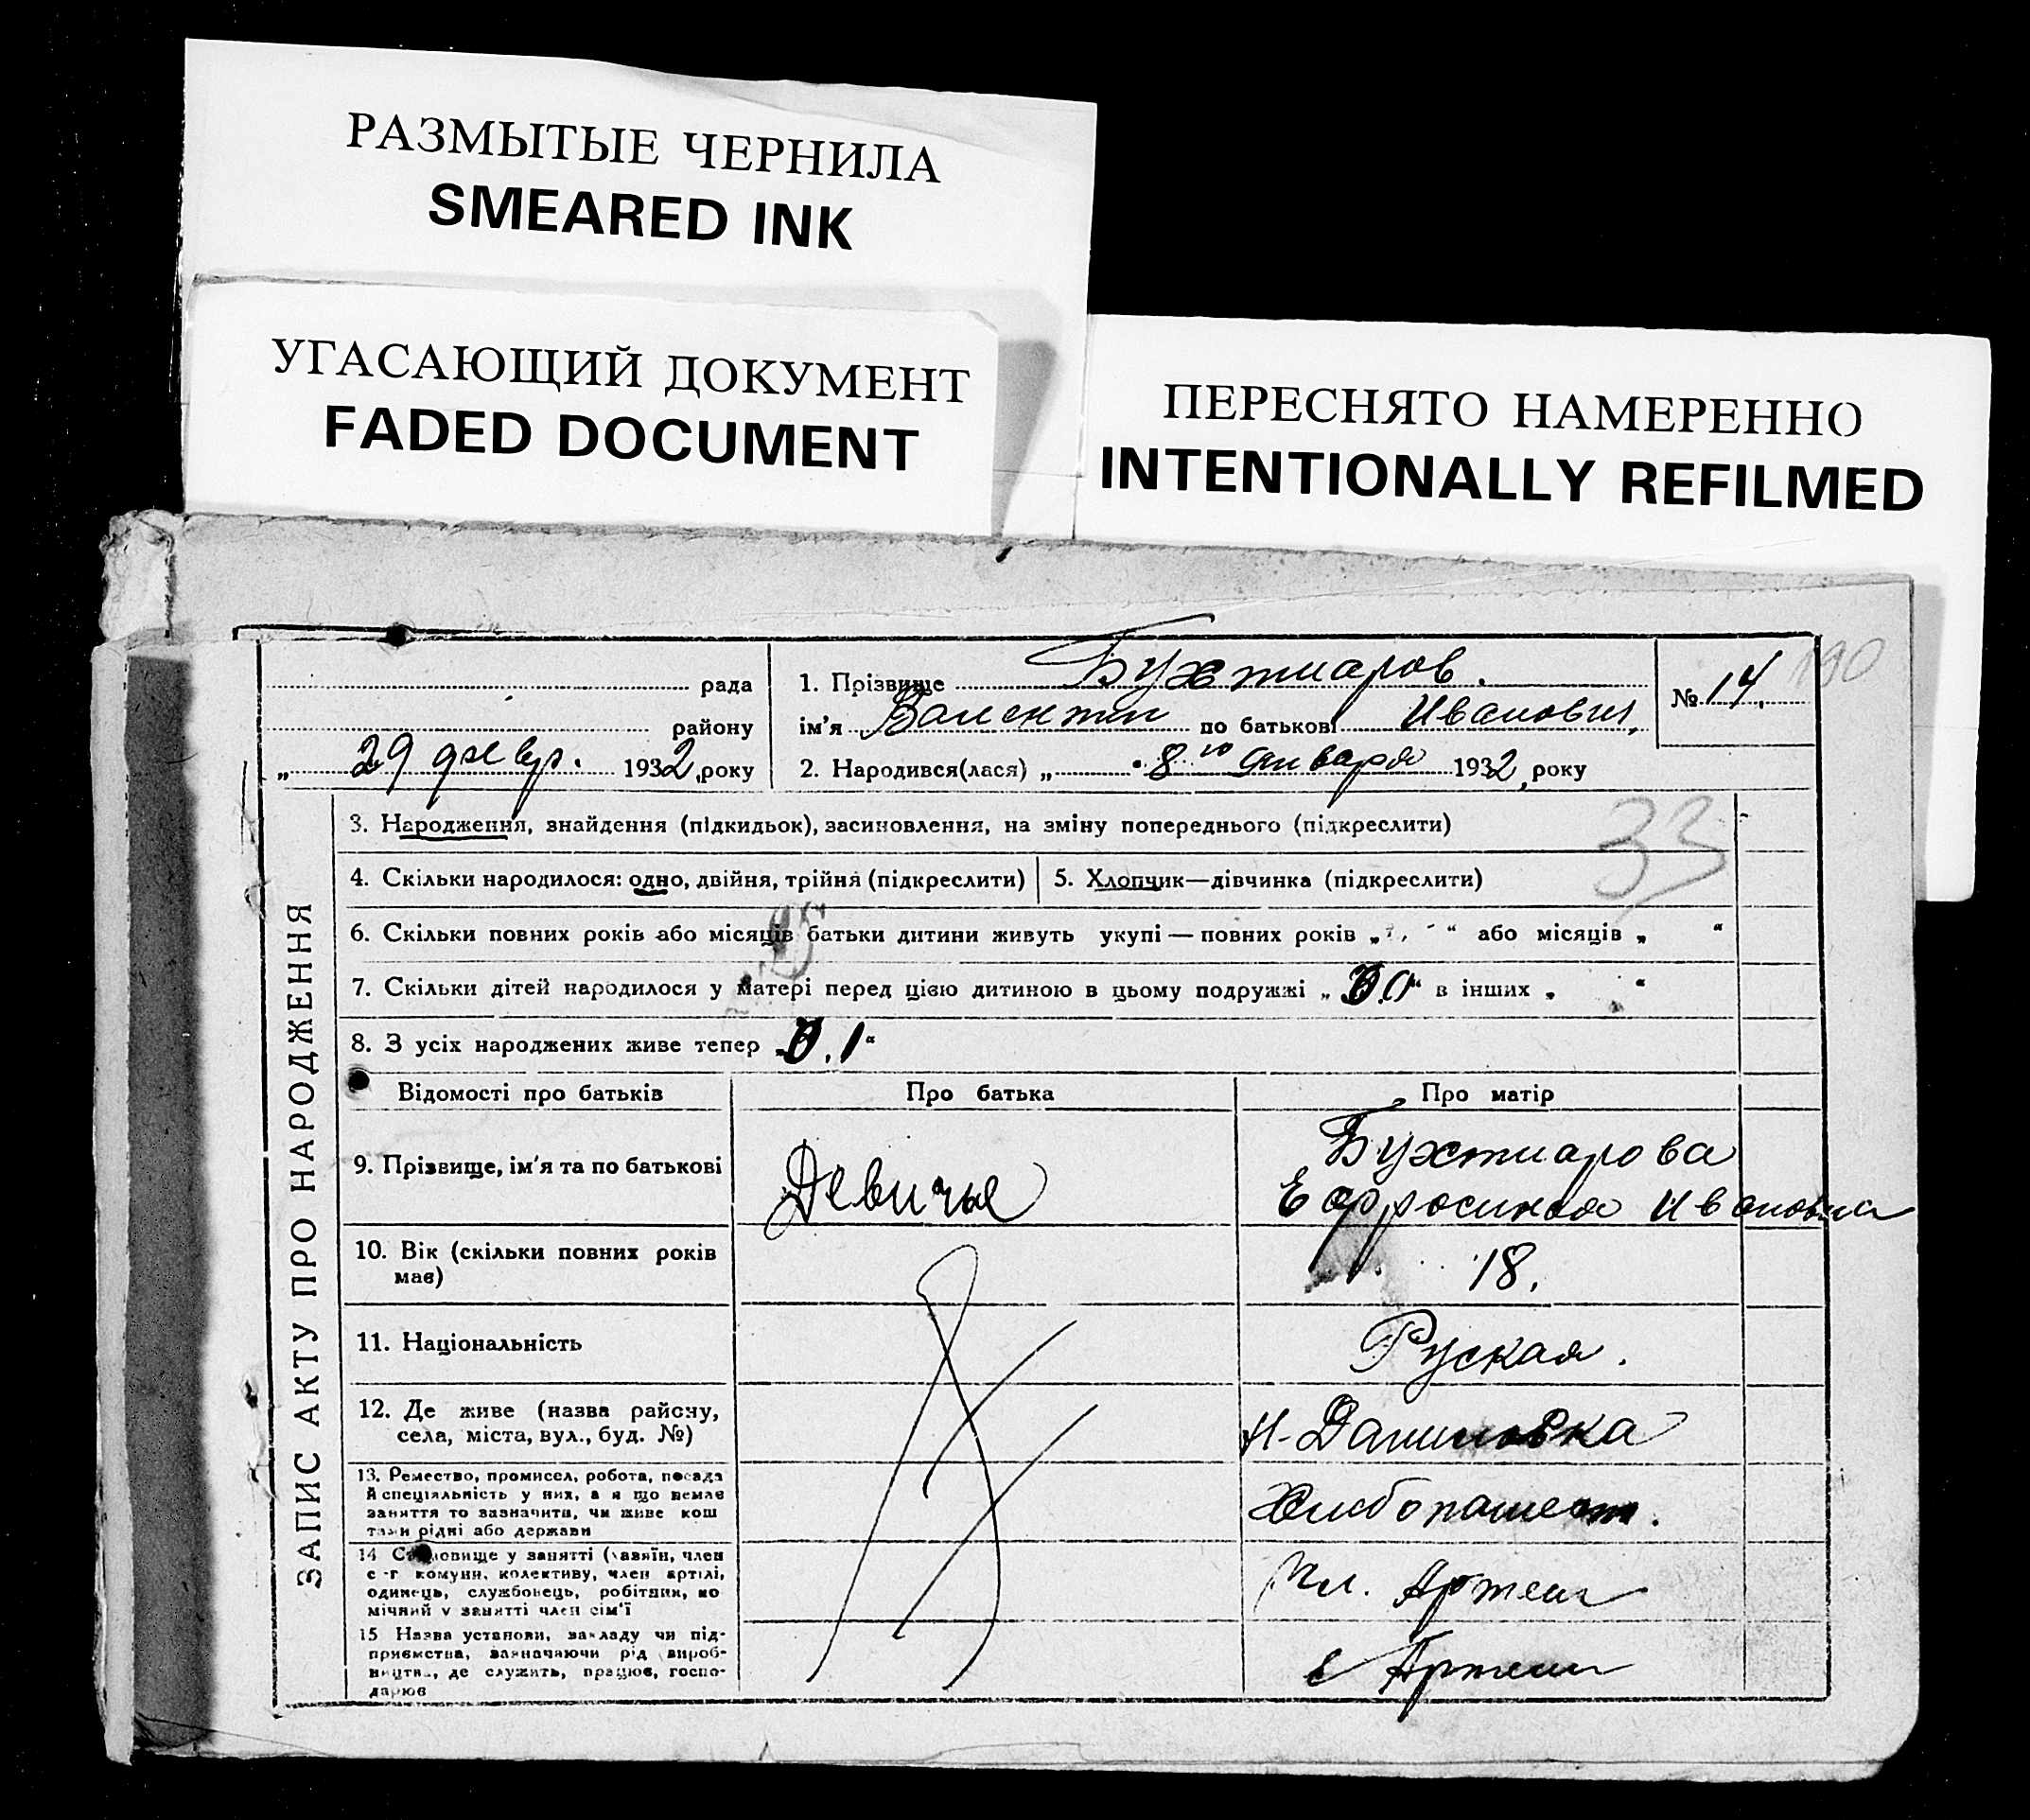 РАЗМЫТЫЕ ЧЕРНИЛА
SMEARED INK
УГАСАЮЩИЙ ДОКУМЕНТ
FADED DOCUMENT
ПЕРЕСНЯТО НАМЕРЕННО
INTENTIONALLY REFILMED
рада
району
29 февр. 1932 року
1. Прізвище Бухтиаров.
ім'я Валентин по батькові Иванович
2. Народився(лася) „ 8го января 1932 року
№ 14.
190
ЗАПИС АКТУ ПРО НАРОДЖЕННЯ
3. Народження, знайдення (підкидьок), засиновлення, на зміну попереднього (підкреслити)
33
4. Скільки народилося: одно, двійня, трійня (підкреслити)
5. Хлопчик—дівчинка (підкреслити)
6. Скільки повних років або місяців батьки дитини живуть укупі — повних років „ “ або місяців „ “
7. Скільки дітей народилося у матері перед цією дитиною в цьому подружжі „ “ в інших „ “
8. З усіх народжених живе тепер „ 1“
Відомості про батьків
Про батька
Про матір
9. Прізвище, ім'я та по батькові
Девичье
Бухтиарова
Ефросиния Ивановна
10. Вік (скільки повних років
має)
18.
11. Національність
Руская.
12. Де живе (назва району,
села, міста, вул., буд. №)
Н-Даниловка
13. Ремество, промисел, робота, посада
й спеціяльність у них, а я що немає
заняття то зазначити, чи живе кош
тами рідні або держави
Хлибопашест.
14 Становище у занятті (хазяїн, член
с-г комуни, колективу, член артілі,
одинець, службовець, робітник, по
мічний у занятті член сім'ї
Чл. Артели
15 Назва установи, закладу чи під-
приємства, зазначаючи рід вироб-
ництва, де служить, працює, госпо-
дарює
в Артели